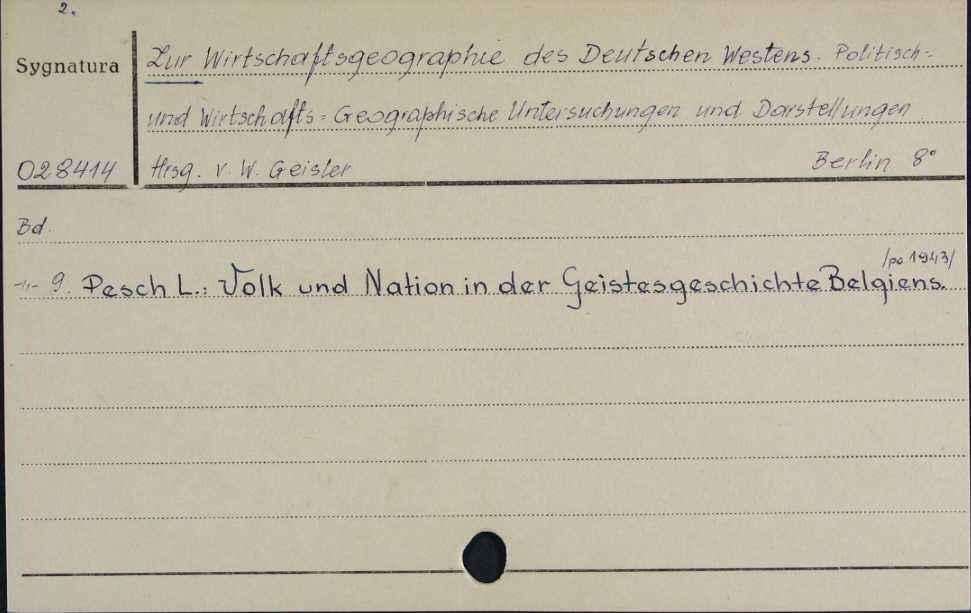 2.
Sygnatura
Zur Wirtschaftsgeographie des Deutschen Westens. Politisch-
und Wirtschafts=Geographische Untersuchungen und Darstellungen
028414
Hrsg. v. W. Geisler Berlin 8°
Bd.
/po 1943/
-"- 9. Pesch L.: Volk und Nation in der Geistesgeschichte Belgiens.